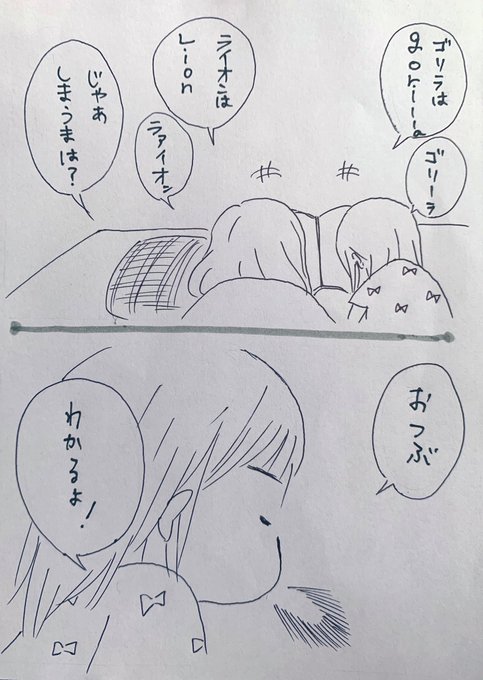 ゴリラは
gorilla
ゴリーラ
ライオンは
Lion
ラァイオン
じゃあ
しまうまは？
おつぶ
わかるよ！